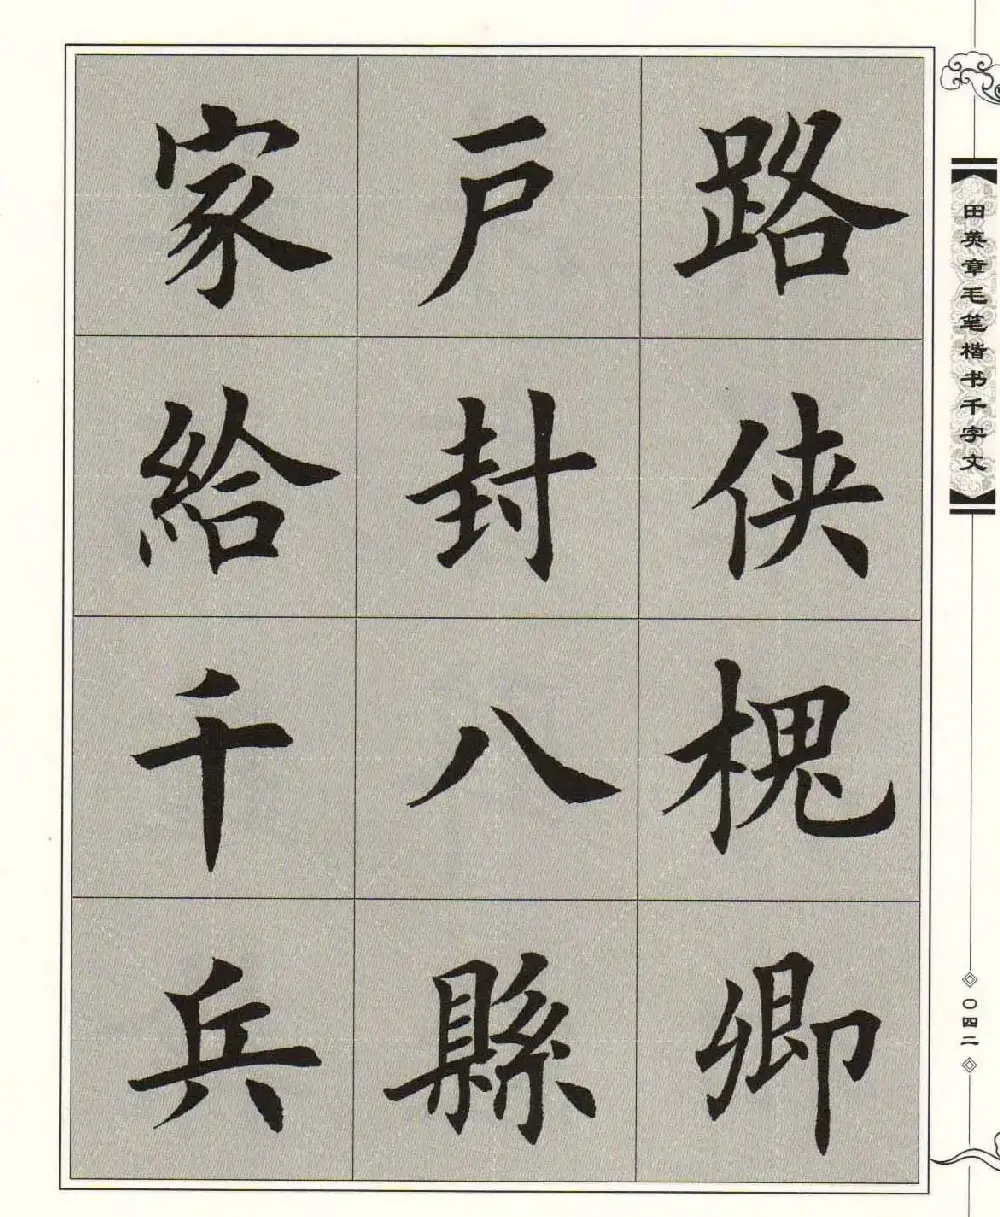 路侠槐卿
戸封八縣
家給千兵
田英章毛笔楷书千字文
〇四二